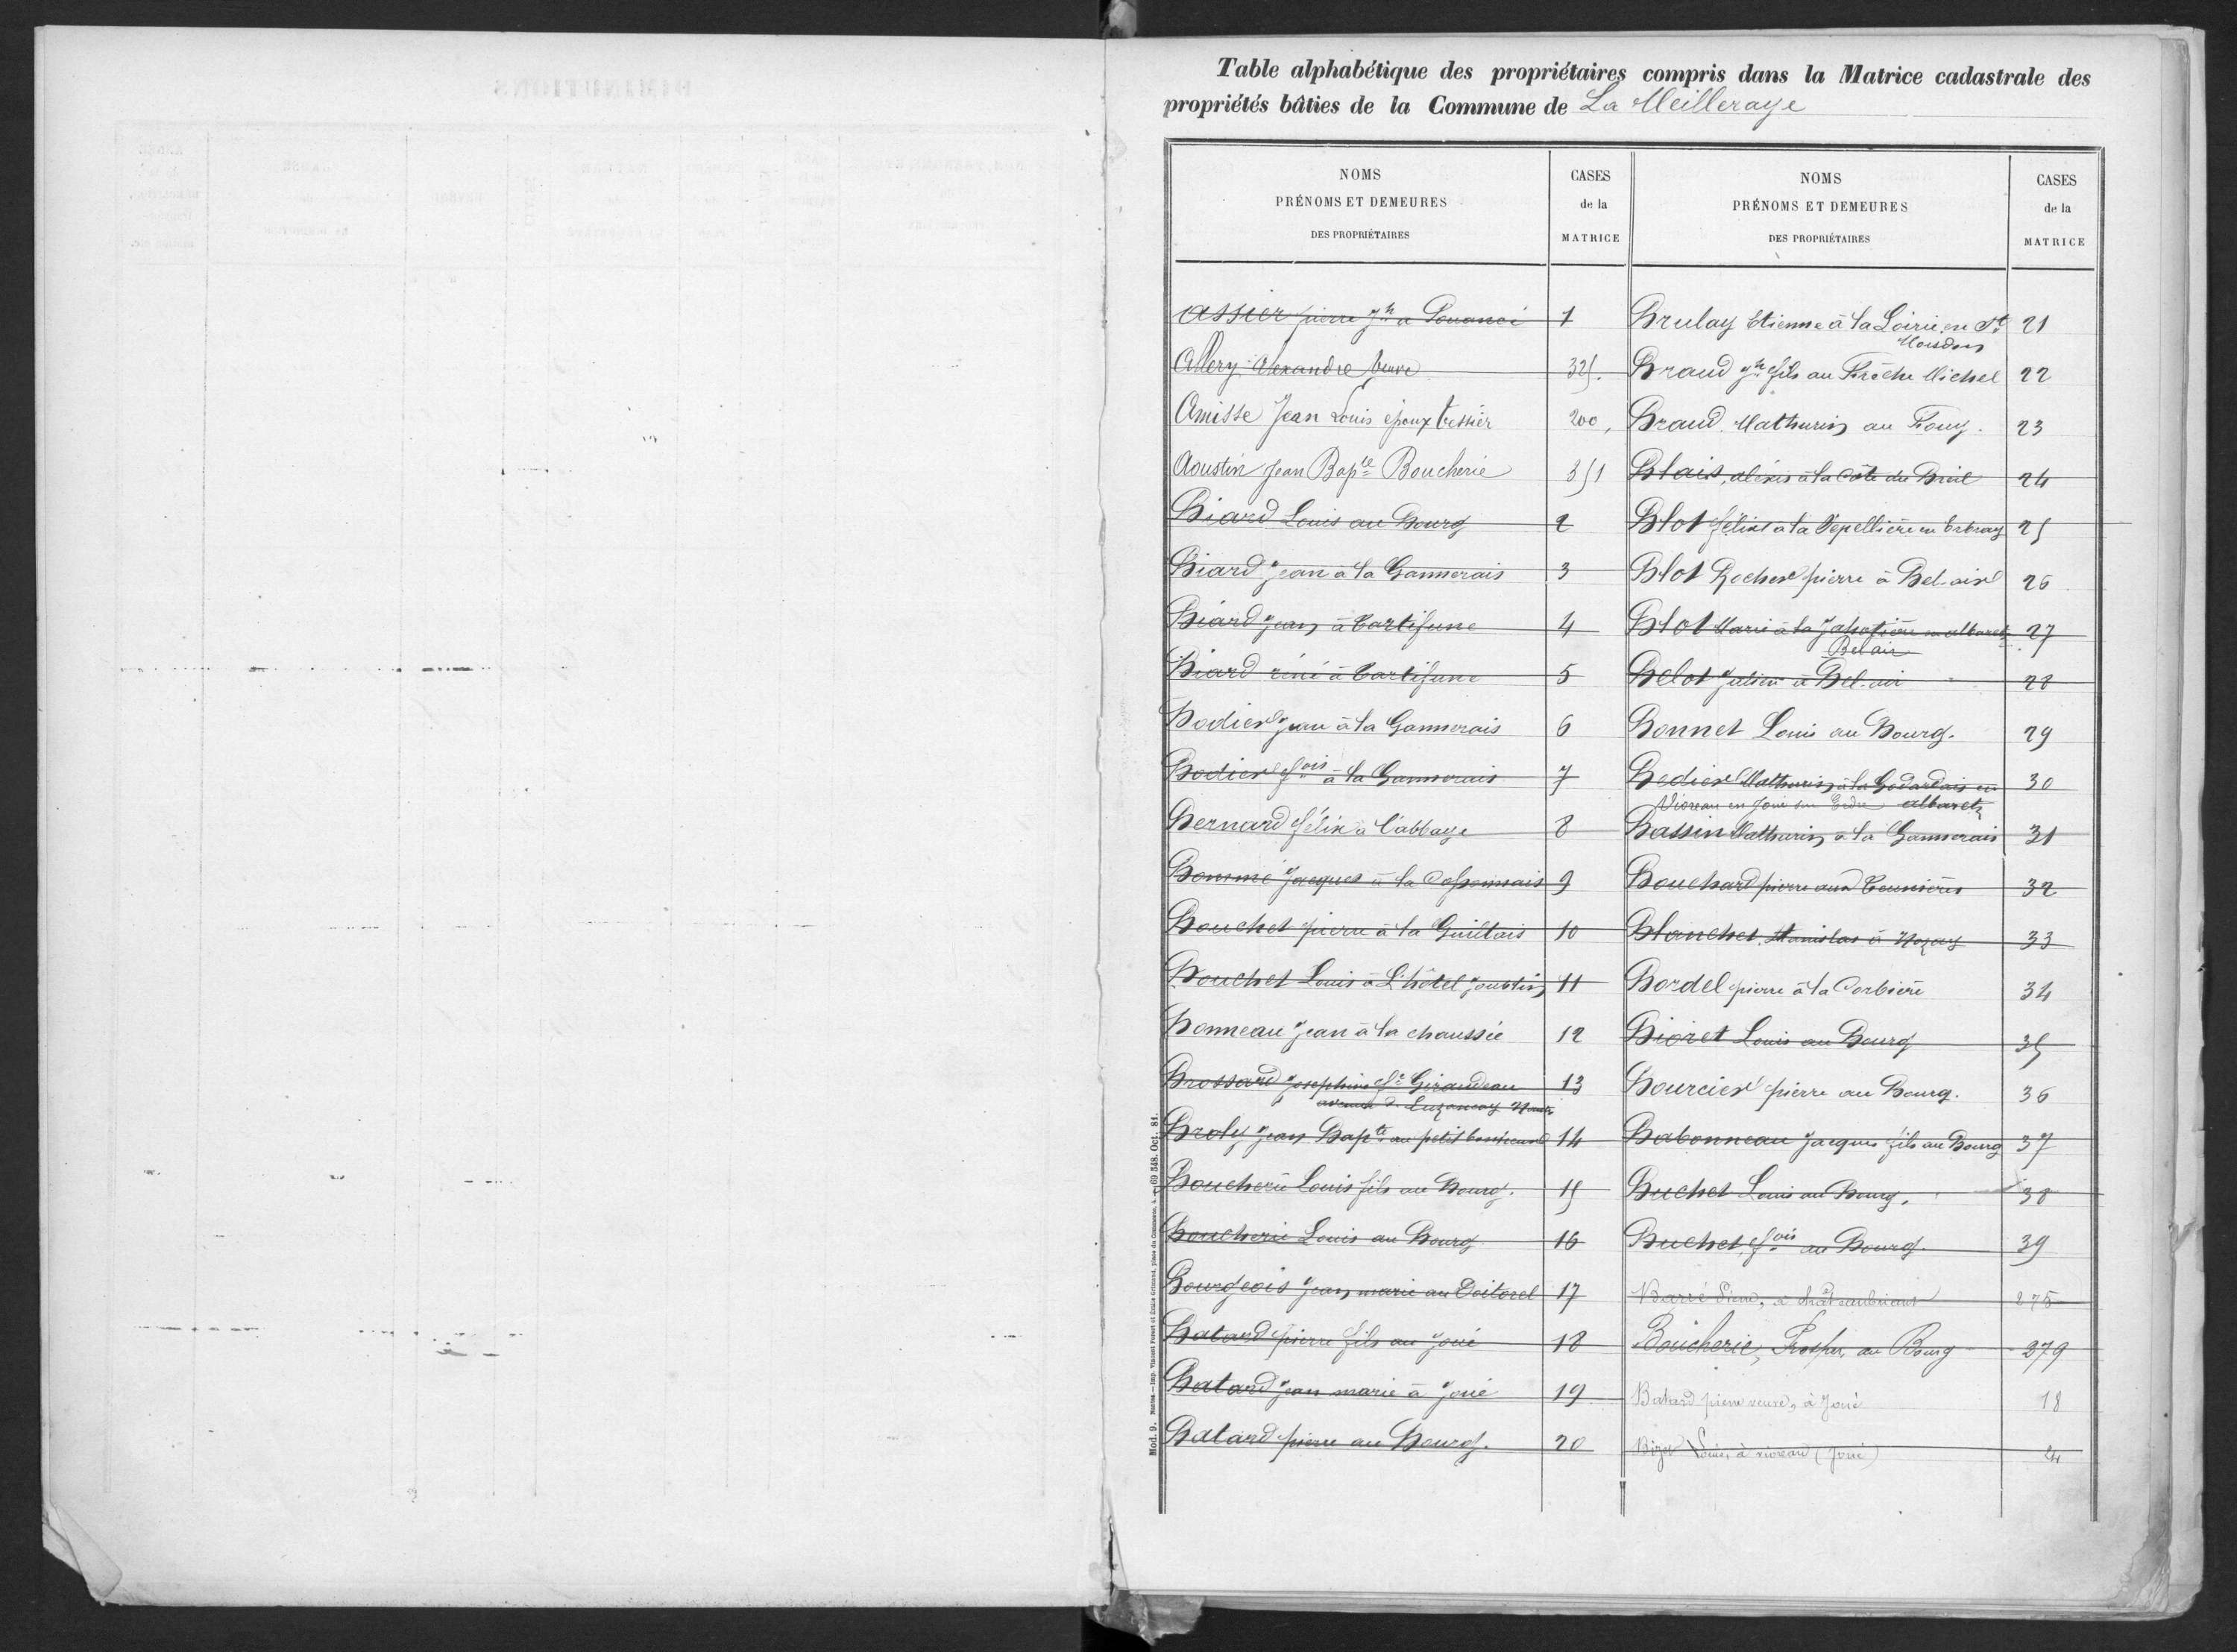 Table alphabétique des propriétaires compris dans la Matrice cadastrale des
propriétés bâties de la Commune de La Meilleraye
NOMS
PRÉNOMS ET DEMEURES
DES PROPRIÉTAIRES
CASES
de la
MATRICE
Assier pierre Jh a Pouancé 1
Allery Alexandre veuve 325.
Amisse Jean Louis époux tessier 200,
Aoustin Jean Bapte Boucherie 351
Biard Louis au Bourg 2
Biard Jean à la Gannerais 3
Biard Jean à Cartifume 4
Biard réné à Cartifume 5
Bodier Jean à la Gannerais 6
Bodier fois à la Gannerais 7
Bernard félix à l'abbaye 8
Bommé Jacques à la 9
Bouchet pierre à la Guiltais 10
Bouchet Louis à L'hôtel Joustin 11
Bonneau Jean à la chaussée 12
Brossard Joséphine fe Giraudeau 13
avenue de Luzançay Nantes
Broly Jean Bapte au petit 14
Boucherie Louis fils au Bourg. 15
Boucherie Louis au Bourg 16
Bourgeois Jean marie au 17
Batard pierre fils au Joué 18
Batard Jean marie à Joué 19
Batard pierre au Bourg. 20
NOMS
PRÉNOMS ET DEMEURES
DES PROPRIÉTAIRES
CASES
de la
MATRICE
Brulay Etienne à la Loirie en St 21
Moisdon
Braud Jh fils au Frêche Michel 22
Braud Mathurin au Fouy. 23
Blais, aléxis à la Côte du Breil 24
Blot félix à la Pepellière en Erbray 25
Blot Rocher pierre à Bel-air 26
Blot Marie à la Jahotière en abbaretz 27
Bel air
Belot Julien à Bel-air 28
Bonnet Louis au Bourg. 29
Bedier Mathurin à la Godardais en 30
Vioreau en Joué sur Erdre abbaretz
Bassin Mathurin à la Gannerais 31
Bouchard pierre aux 32
Blanchet Stanislas à Nozay 33
Bordel pierre à la Corbière 34
Bioret Louis au Bourg 35
Bourcier pierre au Bourg. 36
Babonneau Jacques fils au Bourg 37
Buchet Louis au Bourg. 38
Buchet, fois au Bourg. 39
Barré Pierre, à chateaubriant 275
Boucherie, Prosper au Bourg 279
Batard pierre veuve, à Joué 18
Bizot Louis, à vioreau (Joué) 24
Mod. 9. Nantes.—Imp. Vincent Forest et Émile Grimaud, place du Commerce, 4. — 69 348. Oct. 81.